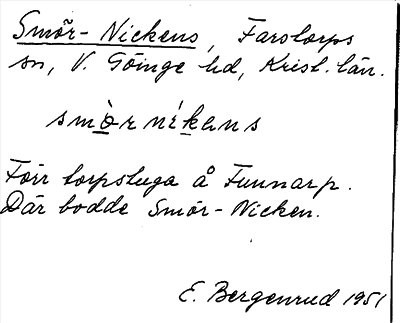 Smör-Nickens, Farstorps
sn, V. Göinge hd, Krist. län.
smὸrníkens
Förr torpstuga å Funnarp.
Där bodde Smör-Nicken.
E. Bergenrud 1951